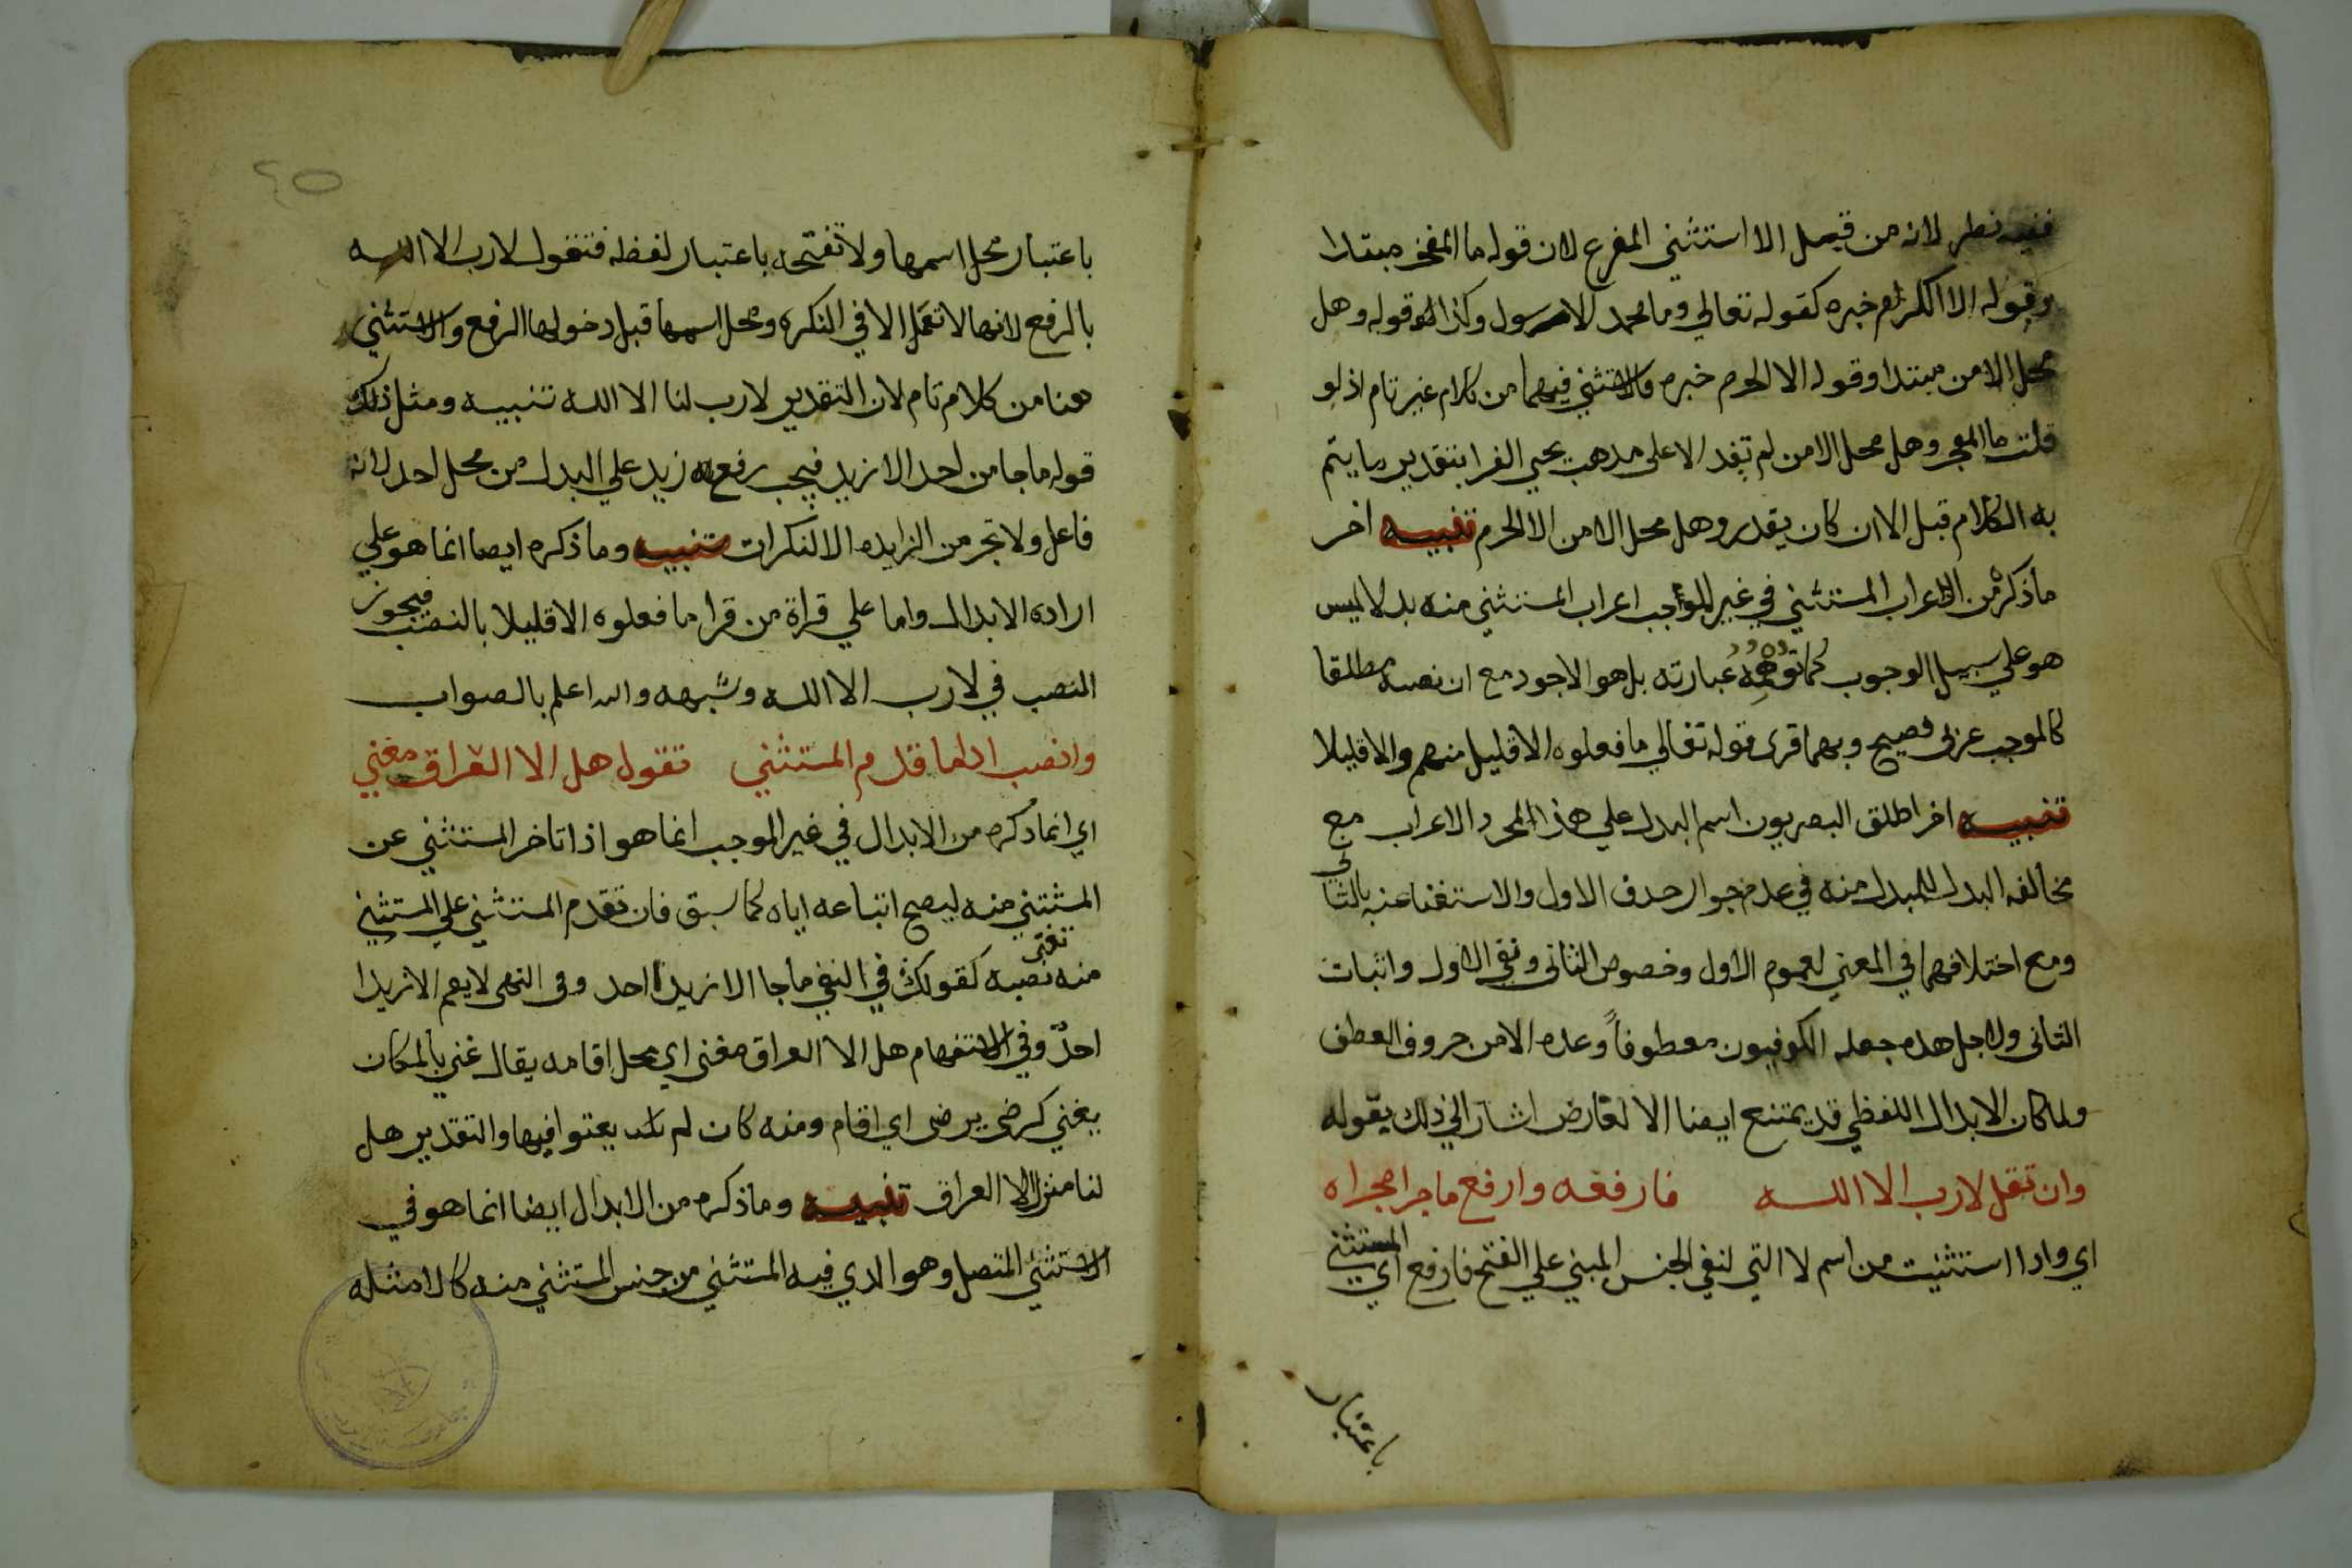 ففيه نظر لانه من قبيل الا استثني المفرغ لان قوله ما المفخر مبتدا
وقوله الا الكرم خبره كقوله تعالي وما محمد الا رسول وكذلك قوله وهل
محل الامن مبتدا وقوله الا الحرم خبره والاستثني فيهما من كلام غير تام اذ لو
قلت ما الفخر وهل محل الامن لم تفد الا على مذهب يحيي الفرا بتقدير ما يتم
به الكلام قبل الا ان كان يقدر وهل محل الامن الا الحرم تنبيه اخر
ما ذكره من اعراب المستثني في غير الموجب اعراب المستثني منه بدلا ليس
هو علي سبيل الوجوب كما توهمه عبارته بل هو الاجود مع ان نصبه مطلقا
كالموجب عربى فصيح وبهما قرى قوله تعالي ما فعلوه الا قليل منهم والا قليلا
تنبيه اخر اطلق البصريون اسم البدل علي هذا المجرد الاعراب مع
مخالفه البدل للمبدل منه في عدم جواز حذف الاول والاستغنا عنه بالثانى
ومع اختلافهما في المعني لعموم الاول وخصوص الثانى ونفى الاول واثبات
الثانى ولاجل هذه جعله الكوفيون معطوفاً وعده الا من حروف العطف
ولما كان الابدال اللفظي قد يمتنع ايضا الا لعارض اشار الي ذلك بقوله
وان تقل لا رب الا الله فارفعه وارفع ما جرا مجراه
اي واذا استثنيت من اسم لا التي لنفي الجنس المبني علي الفتح فارفع اي المستثني
باعتبار
٤٥
باعتبار محل اسمها ولا تفتحه باعتبار لفظه فتقول لا رب الا الله
بالرفع لانها لا تعمل الا في النكره ومحل اسمها قبل دخولها الرفع والاستثني
هنا من كلام تام لان التقدير لا رب لنا الا الله تنبيه ومثل ذلك
قوله ما جا من احد الا زيد فيجب رفع زيد علي البدل من محل احد لانه
فاعل ولا تجر من الزايده الا النكرات تنبيه وما ذكره ايضا انما هو علي
اراده الابدال واما علي قراة من قرا ما فعلوه الا قليلا بالنصب فيجوز
النصب في لا رب الا الله وشبهه والله اعلم بالصواب
وانصب اذا ما قدم المستثني تقول هل الا العراق مغني
اي انما ذكره من الابدال في غير الموجب انما هو اذا تاخر المستثني عن
المستثني منه ليصح اتباعه اياه كما سبق فان تقدم المستثني علي المستثني
منه نصبه كقولك في النفي ما جا الا زيدا احد وفى النهى لا يقم الا زيدا
احدٌ وفي الاستفهام هل الا العراق مغنى اي محل اقامه يقال غني بالمكان
يغني كرضى يرضى اي اقام ومنه كان لم يغنوا فيها والتقدير هل
لنا منزل الا العراق تنبيه وما ذكره من الابدال ايضا انما هو في
الاستثني المتصل وهو الذي فيه المستثني من جنس المستثني منه كالامثله